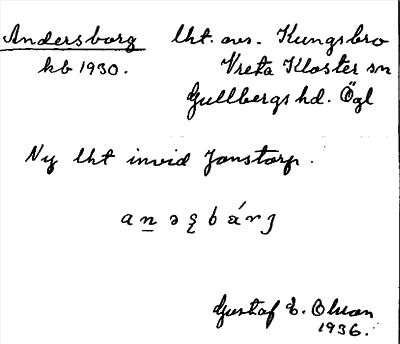 Andersborg lht. avs. Kungsbro
kb 1930. Vreta Kloster sn
Gullbergs hd. Ögl
Ny lht invid Jonstorp.
Gustaf E. Olsson
1936.